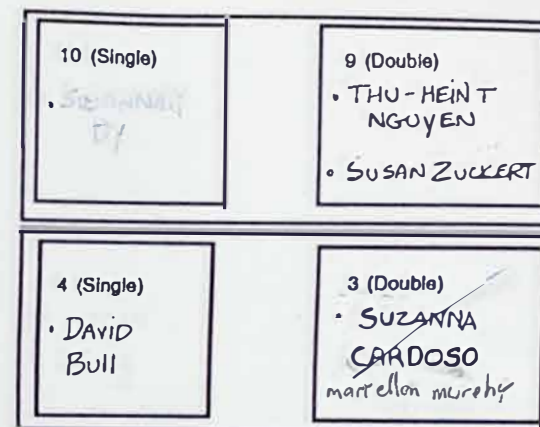 10 (Single)
DY
9 (Double)
• THU-HEIN T
NGUYEN
• SUSAN ZUCKERT
4 (Single)
• DAVID
Bull
3 (Double)
• SUZANNA
CARDOSO
murphy